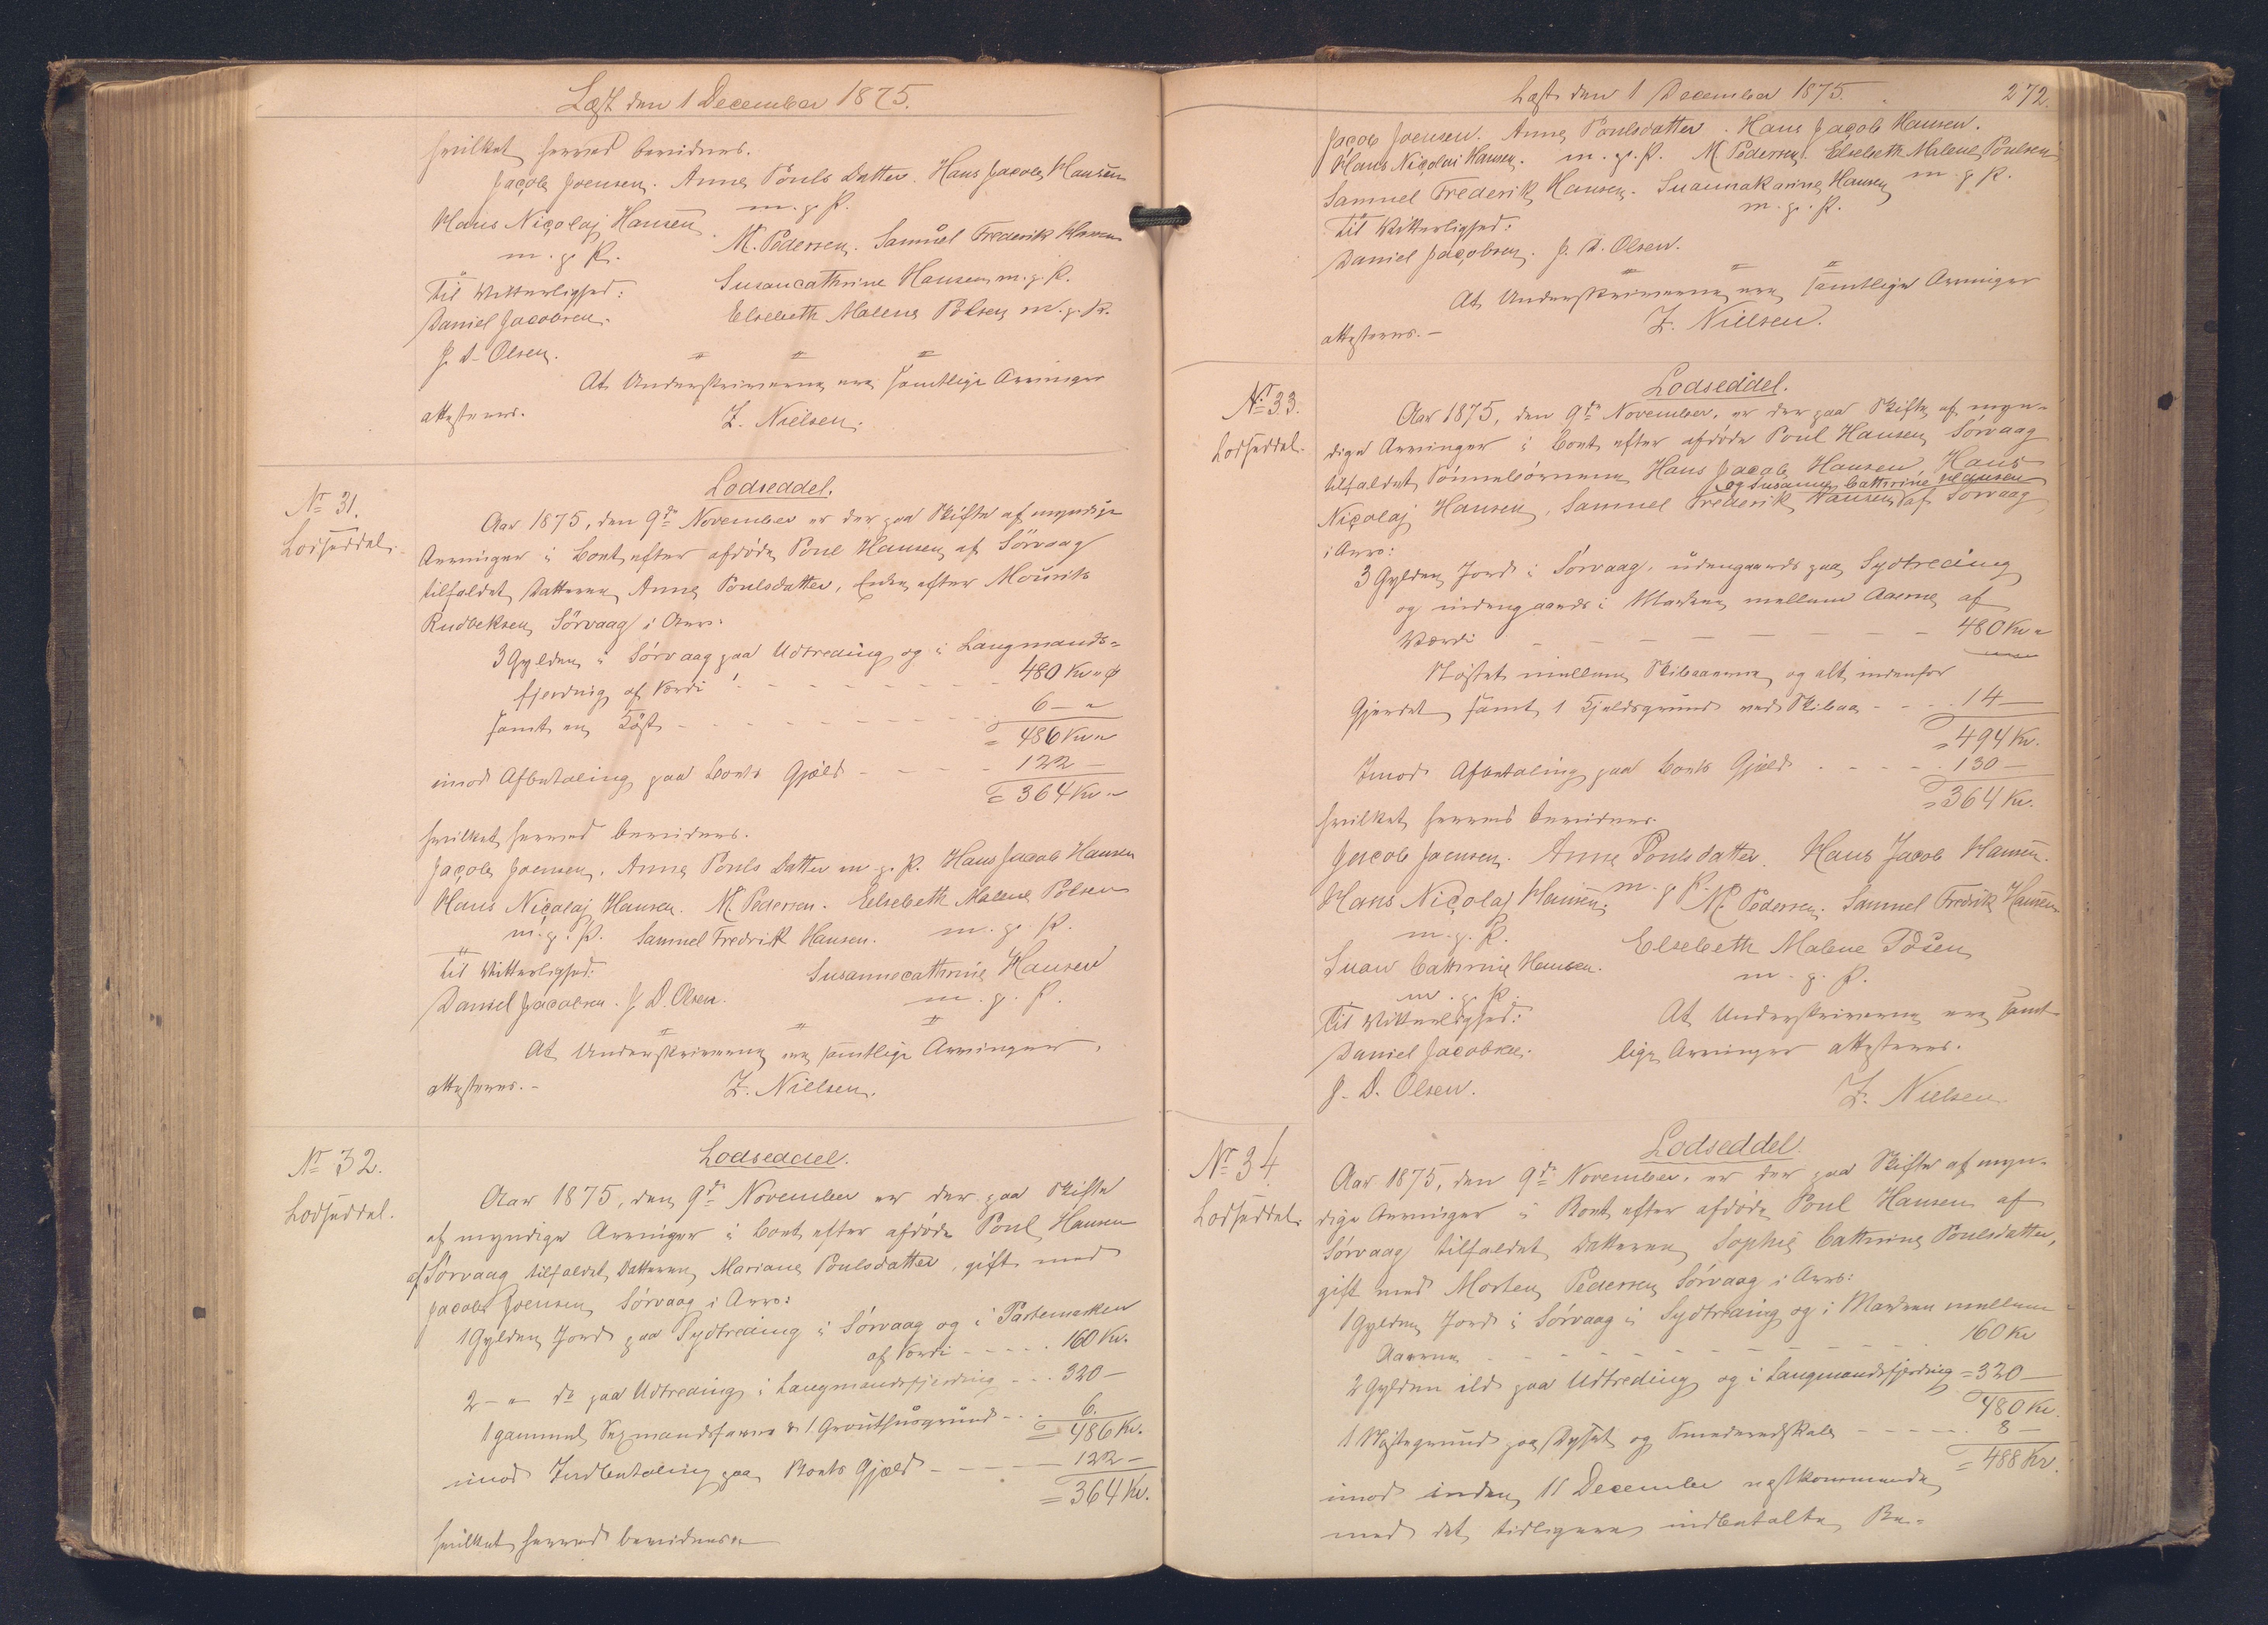 Læst den 1 December 1875.
hvilket herved bevidnes.
Jacob Joensen. Anne Pouls Datter. Hans Jacob Hansen
m. f. P.
Hans Nicolaj Hansen
m. p. P.
M. Pedersen. Samuel Frederik Hansen
Til Vitterlighed:
Susancathrine Hansen m. p. P.
Daniel Jacobsen.
Elsebeth Malene Polsen m. p. P.
J. D. Olsen.
At Underskriverne ere samtlige Arvinger
attesteres.
Z. Nielsen.
No 31.
Lodseddel.
Lodseddel.
Aar 1875, den 9de November er der paa Skifte af myndige
Arvinger i Boet efter afdøde Poul Hansen af Sörvaag
tilfaldet Datteren Anne Poulsdatter, Enke efter Mourits
Rudbeksen, Sörvaag i Arv:
3 Gylden i Sörvaag paa Udtreding og i Laugmands-
fjerding af Værdi 480 Kr " ø
samt en Töst 6 - "
= 486 Kr "
imod Afbetaling paa Boets Gjæld 122 -
= 364 Kr "
hvilket herved bevidnes.
Jacob Joensen. Anne Pouls Datter m. p. P. Hans Jacob Hansen
Hans Nicolaj Hansen. M. Pedersen. Elsebeth Malene Polsen
m. p. P. Samuel Fredrik Hansen. m. p. P.
Til Vitterlighed:
Susannecathrine Hansen
Daniel Jacobsen. J. D. Olsen.
m. p. P.
At Underskriverne ere samtlige Arvinger,
attesteres. -
Z. Nielsen.
No 32.
Lodseddel.
Lodseddel.
Aar 1875, den 9de November er der paa Skifte
af myndige Arvinger i Boet efter afdøde Poul Hansen
af Sörvaag tilfaldet Datteren Mariane Poulsdatter, gift med
Jacob Joensen, Sörvaag i Arv:
1 Gylden Jord paa Sydtreding i Sörvaag og i Partemarken
af Værdi 160 Kr.
2 - " do paa Udtreding i Laugmandsfjerding 320 -
1 gammel Sexmandsfarer & 1 Grouthusgrund 6.
= 486 Kr.
imod Indbetaling paa Boets Gjæld 122 -
= 364 Kr.
hvilket herved bevidnes.
Læst den 1 December 1875.
272.
Jacob Joensen. Anne Poulsdatter. Hans Jacob Hansen.
Hans Nicolai Hansen. m. p. P. M Pedersen. Elsebeth Malene Poulsen
Samuel Frederik Hansen. Suannakarine Hansen m. p. P.
m. p. P.
Til Vitterlighed:
Daniel Jacobsen. J. D. Olsen.
At Underskriverne ere samtlige Arvinger
attesteres. -
Z. Nielsen.
No 33.
Lodseddel.
Lodseddel.
Aar 1875, den 9de November, er der paa Skifte af myn-
dige Arvinger i Boet efter afdøde Poul Hansen Sörvaag
tilfaldet Sönnebörnene Hans Jacob Hansen, Hans
og Susanne Cathrine Hansen
Nicolaj Hansen, Samuel Frederik Hansen af Sörvaag
i Arv:
3 Gylden Jord i Sörvaag, udengaards paa Sydtreding
og indengaards i Marken mellem Aaerne af
Værdi 480 Kr "
mellem Skibaaerne og alt indenfor
Gjerdet samt 1 Kjeldsgrund ved Skibaa 14 -
= 494 Kr.
Imod Afbetaling paa Boets Gjæld 130 -
= 364 Kr.
hvilket herved bevidnes.
Jacob Joensen. Anne Poulsdatter. Hans Jacob Hansen.
Hans Nicolaj Hansen. m. p. P. M. Pedersen. Samuel Fredrik Hansen
m. p. P.
Elsebeth Malene Posen
Suan Cathrine Hansen.
m. p. P.
m. p. P.
Til Vitterlighed:
At Underskriverne ere samt-
Daniel Jacobsen.
lige Arvinger attesteres.
J. D. Olsen.
Z. Nielsen
No 34.
Lodseddel.
Lodseddel.
Aar 1875, den 9de November, er der paa Skifte af myn-
dige Arvinger i Boet efter afdøde Poul Hansen af
Sörvaag tilfaldet Datteren Sophie Cathrine Poulsdatter,
gift med Morten Pedersen Sörvaag i Arv:
1 Gylden Jord i Sörvaag i Sydtreding og i Marken mellem
Aaerne 160 Kr
2 Gylden ild paa Udtreding og i Laugmandsfjerding = 320 -
480 Kr.
1 Nøstegrund paa og 8 -
= 488 Kr.
imod inden 11 December næstkommende
med det tidligere indbetalte Be-